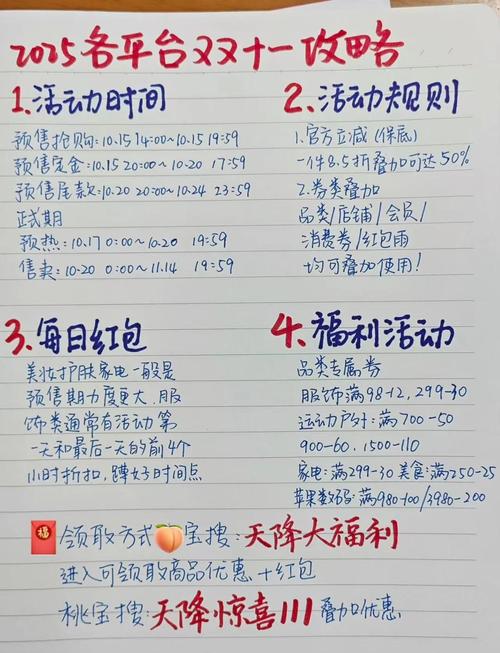 2025各平台双十一攻略
1.活动时间
预售抢购:10.15 14:00~10.15 19:59
预售定金:10.15 20:00~10.20 17:59
预售尾款:10.20 20:00~10.24 23:59
正式期
预热:10.17 0:00~10.20 19:59
售卖:10.20 0:00~11.14 19:59
2.活动规则
1.官方立减(保底)
一件8.5折叠加可达50%
2.券类叠加
品类/店铺/会员/
消费券/红包雨
均可叠加使用!
3.每日红包
美妆护肤家电一般是
预售期力度更大,服
饰类通常有活动第
一天和最后一天的前4个
小时折扣,蹲好时间点
4.福利活动
品类专属券
服饰满98-12,299-30
运动户外:满700-50
900-60.1500-110
家电:满299-30 美食:满250-25
苹果数码:满980-100/3980-200
福
领取方式🍑宝搜:天降大福利
进入可领取商品优惠+红包
桃宝搜:天降惊喜111 叠加优惠